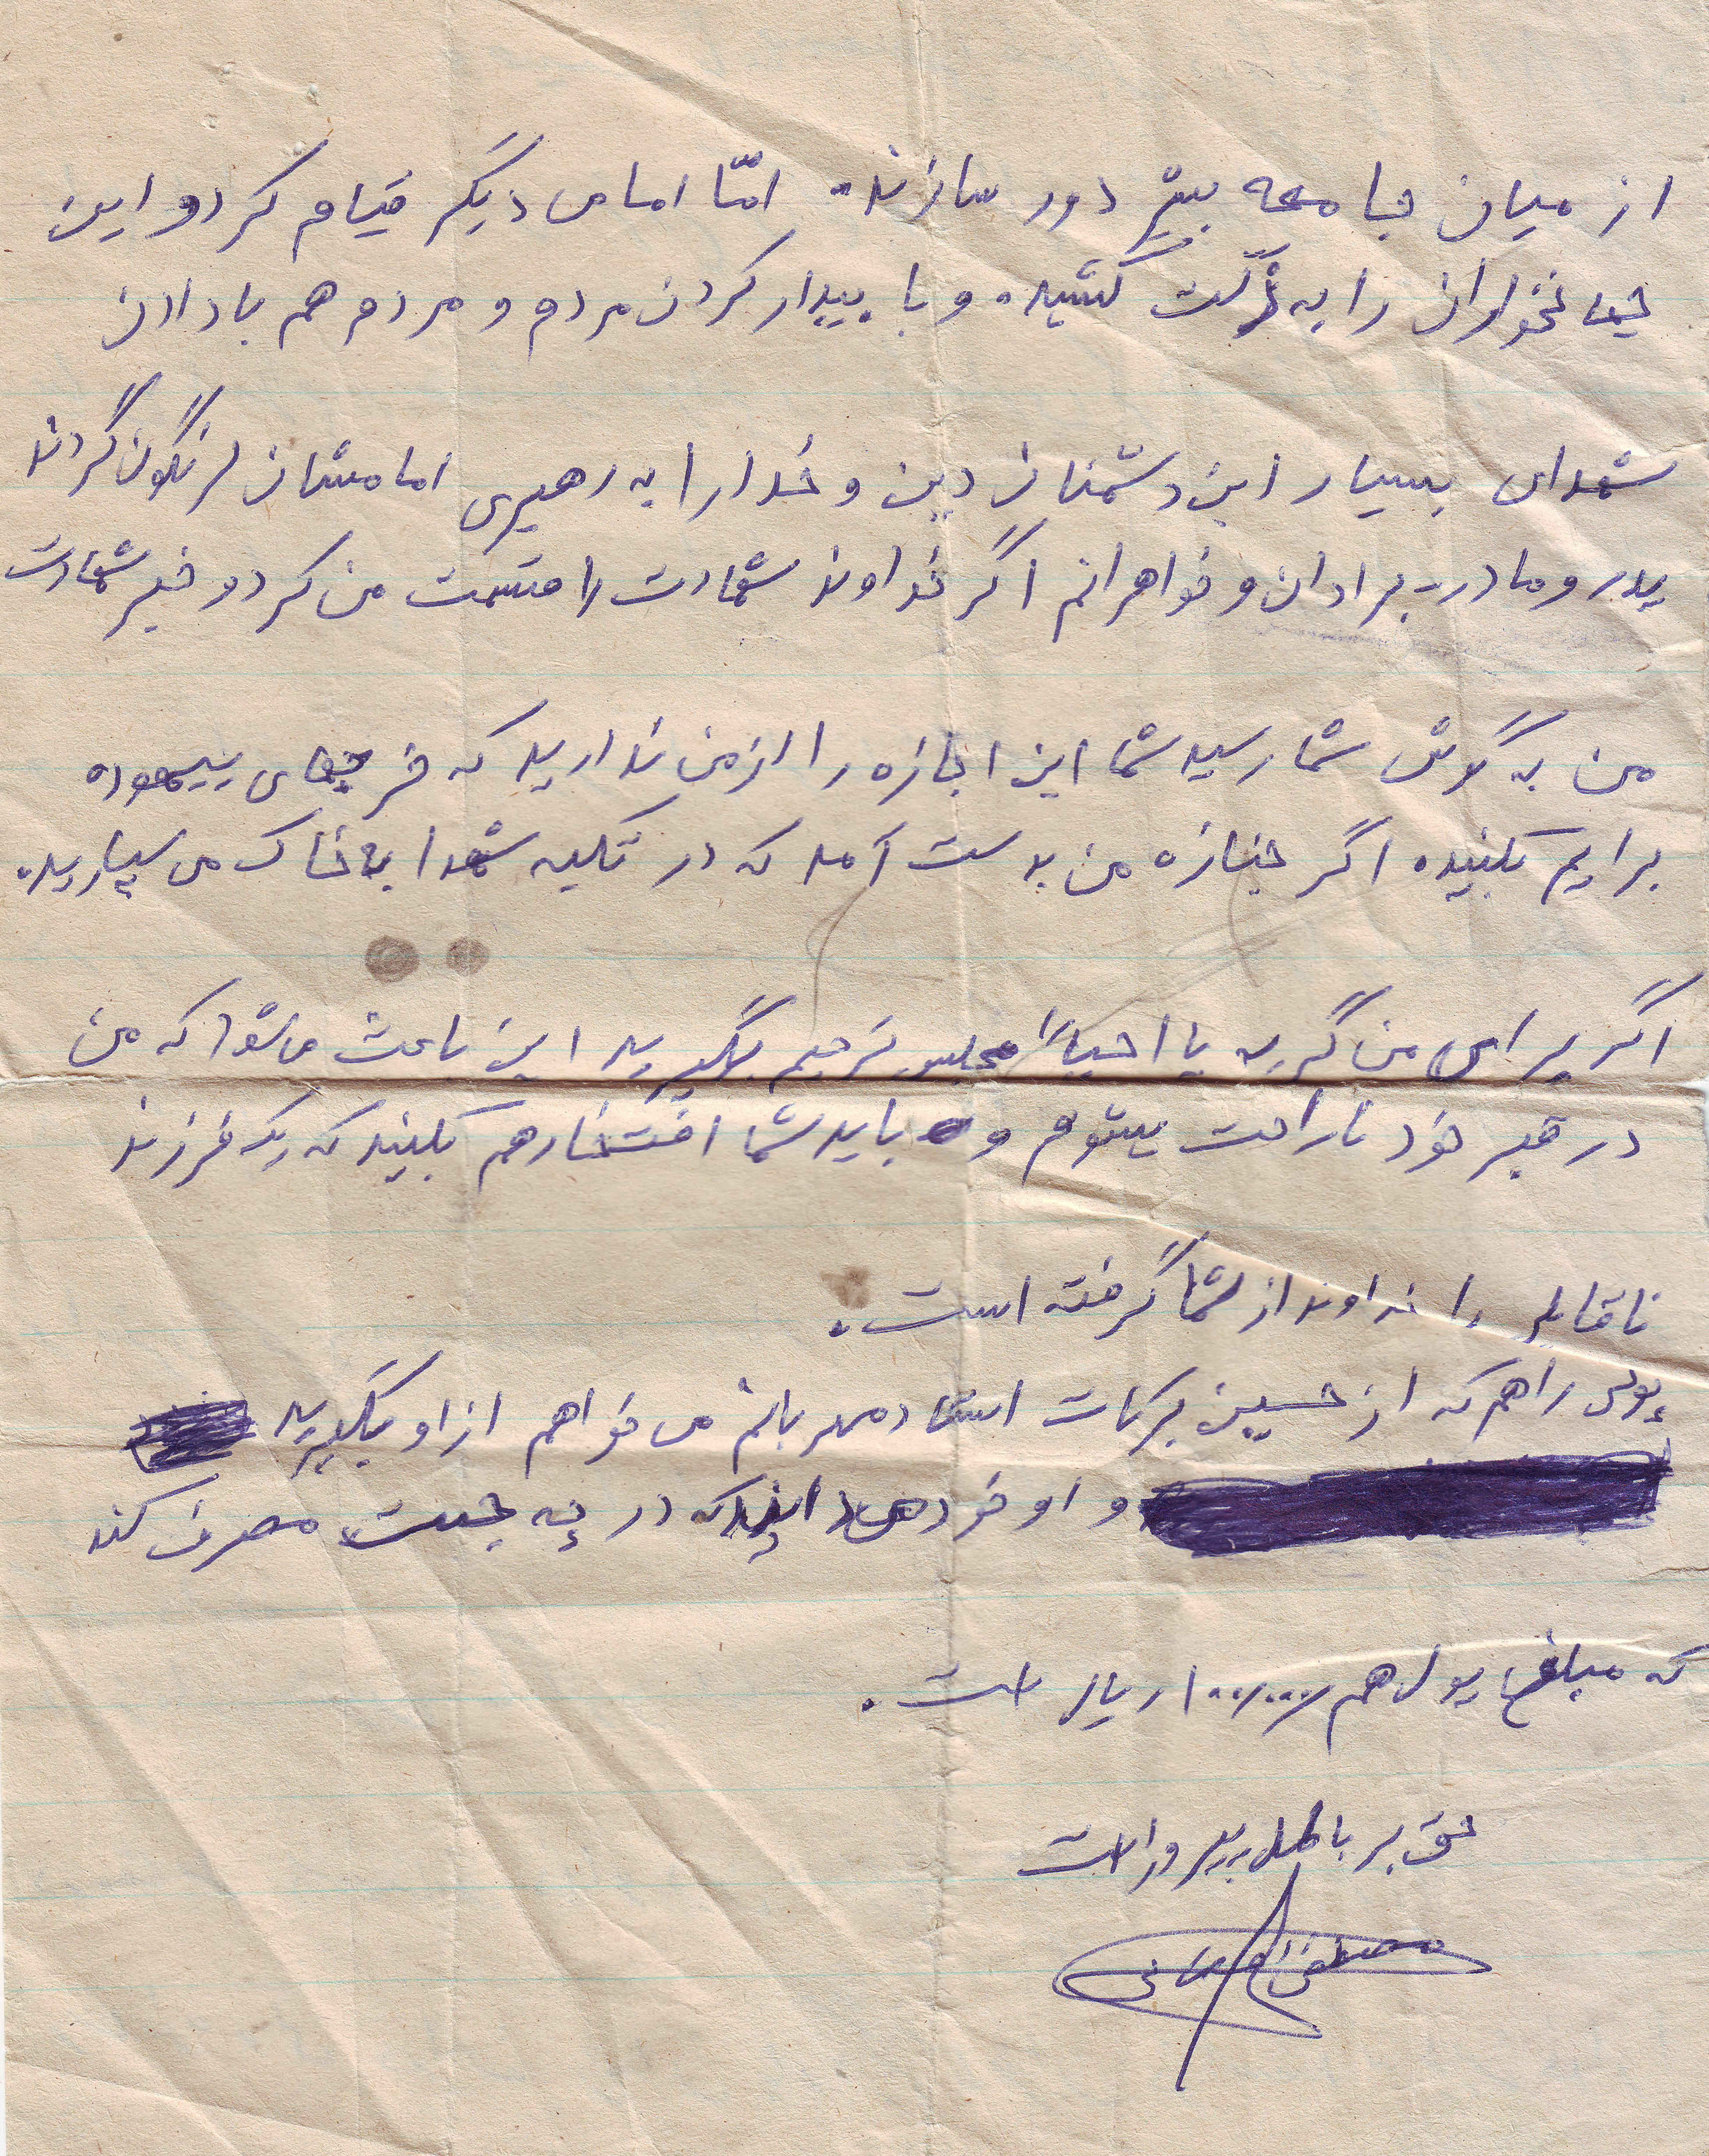 از میان جامعه بشر دور سازند. امّا امامی دیگر قیام کرد و این
جهانخواران را به ذلّت کشید. و با بیدار کردن مردم و مردم هم با دادن
شهدای بسیار این دشمنان دین و خدا را به رهبری امامشان سرنگون گردند
پدر و مادر برادان و خواهرانم اگر خداوند شهادت را قسمت من کرد و خبر شهادت
من به گوش شما رسید شما این اجازه را از من ندارید که خرجهای بیهوده
برایم بکنید. اگر جنازه من بدست آمد که در تکیه شهدا به خاک می سپارید.
اگر برای من گریه یا احیاناً مجلس ترحیم بگیرید این باعث می شود که من
در قبر خود ناراحت بشوم و باید شما افتخار هم بکنید که یک فرزند
ناقابل را خداوند از شما گرفته است.
پولی را هم که از حسین برکات استاد مهربانم می خواهم از او بگیرید
و او خود می داند که در چه جهت مصرف کند
که مبلغ پول هم ۱۰۰/۰۰۰ ریال است.
حق بر باطل پیروز است
مصطفی